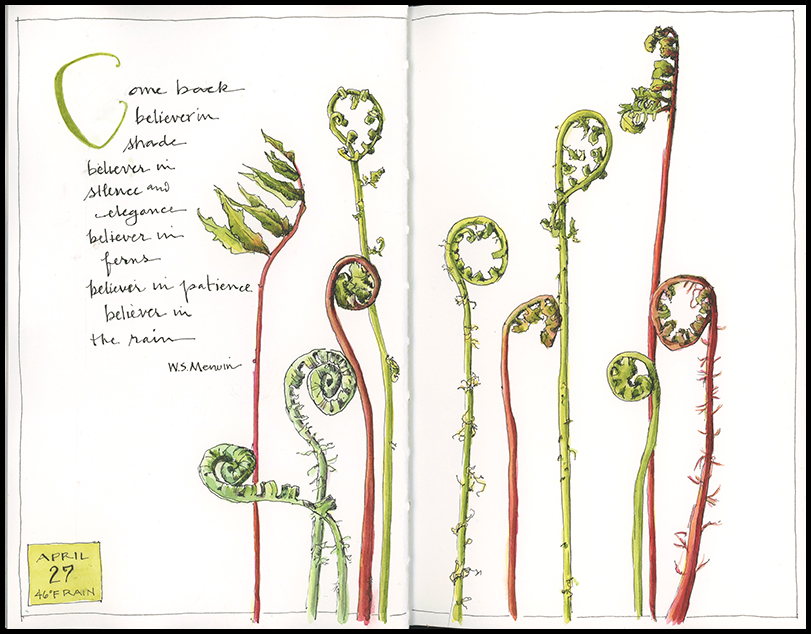 Come back
believer in
shade
believer in
silence and
elegance
believer in
ferns
believer in patience
believer in
the rain
W.S. Merwin
APRIL
27
46°F RAIN